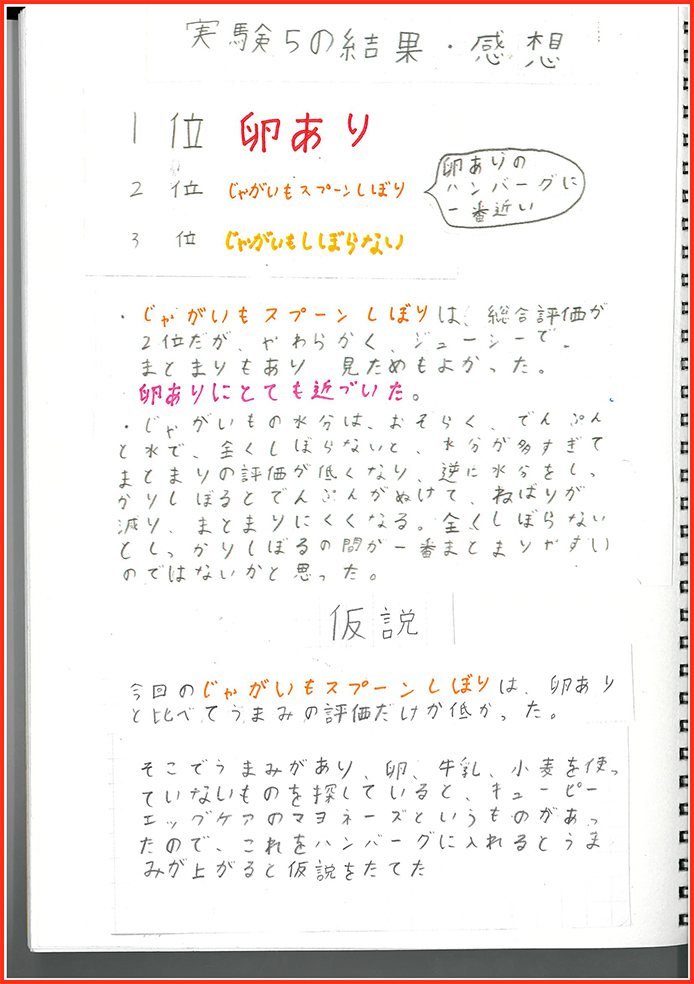 実験5の結果・感想
1位 卵あり
2位 じゃがいもスプーンしぼり
3位 じゃがいもしぼらない
卵ありの
ハンバーグに
一番近い
・じゃがいもスプーンしぼりは、総合評価が
2位だが、やわらかく、ジューシーで、
まとまりもあり 見ためもよかった。
卵ありにとても近づいた。
・じゃがいもの水分は、おそらく、でんぷん
と水で、全くしぼらないと、水分が多すぎて
まとまりの評価が低くなり、逆に水分をしっ
かりしぼるとでんぷんがぬけて、ねばりが
減り、まとまりにくくなる。全くしぼらない
としっかりしぼるの間が一番まとまりやすい
のではないかと思った。
仮説
今回のじゃがいもスプーンしぼりは、卵あり
と比べてうまみの評価だけが低かった。
そこでうまみがあり、卵、牛乳、小麦を使っ
ていないものを探していると、キューピー
エッグケアのマヨネーズというものがあっ
たので、これをハンバーグに入れるとうま
みが上がると仮説をたてた